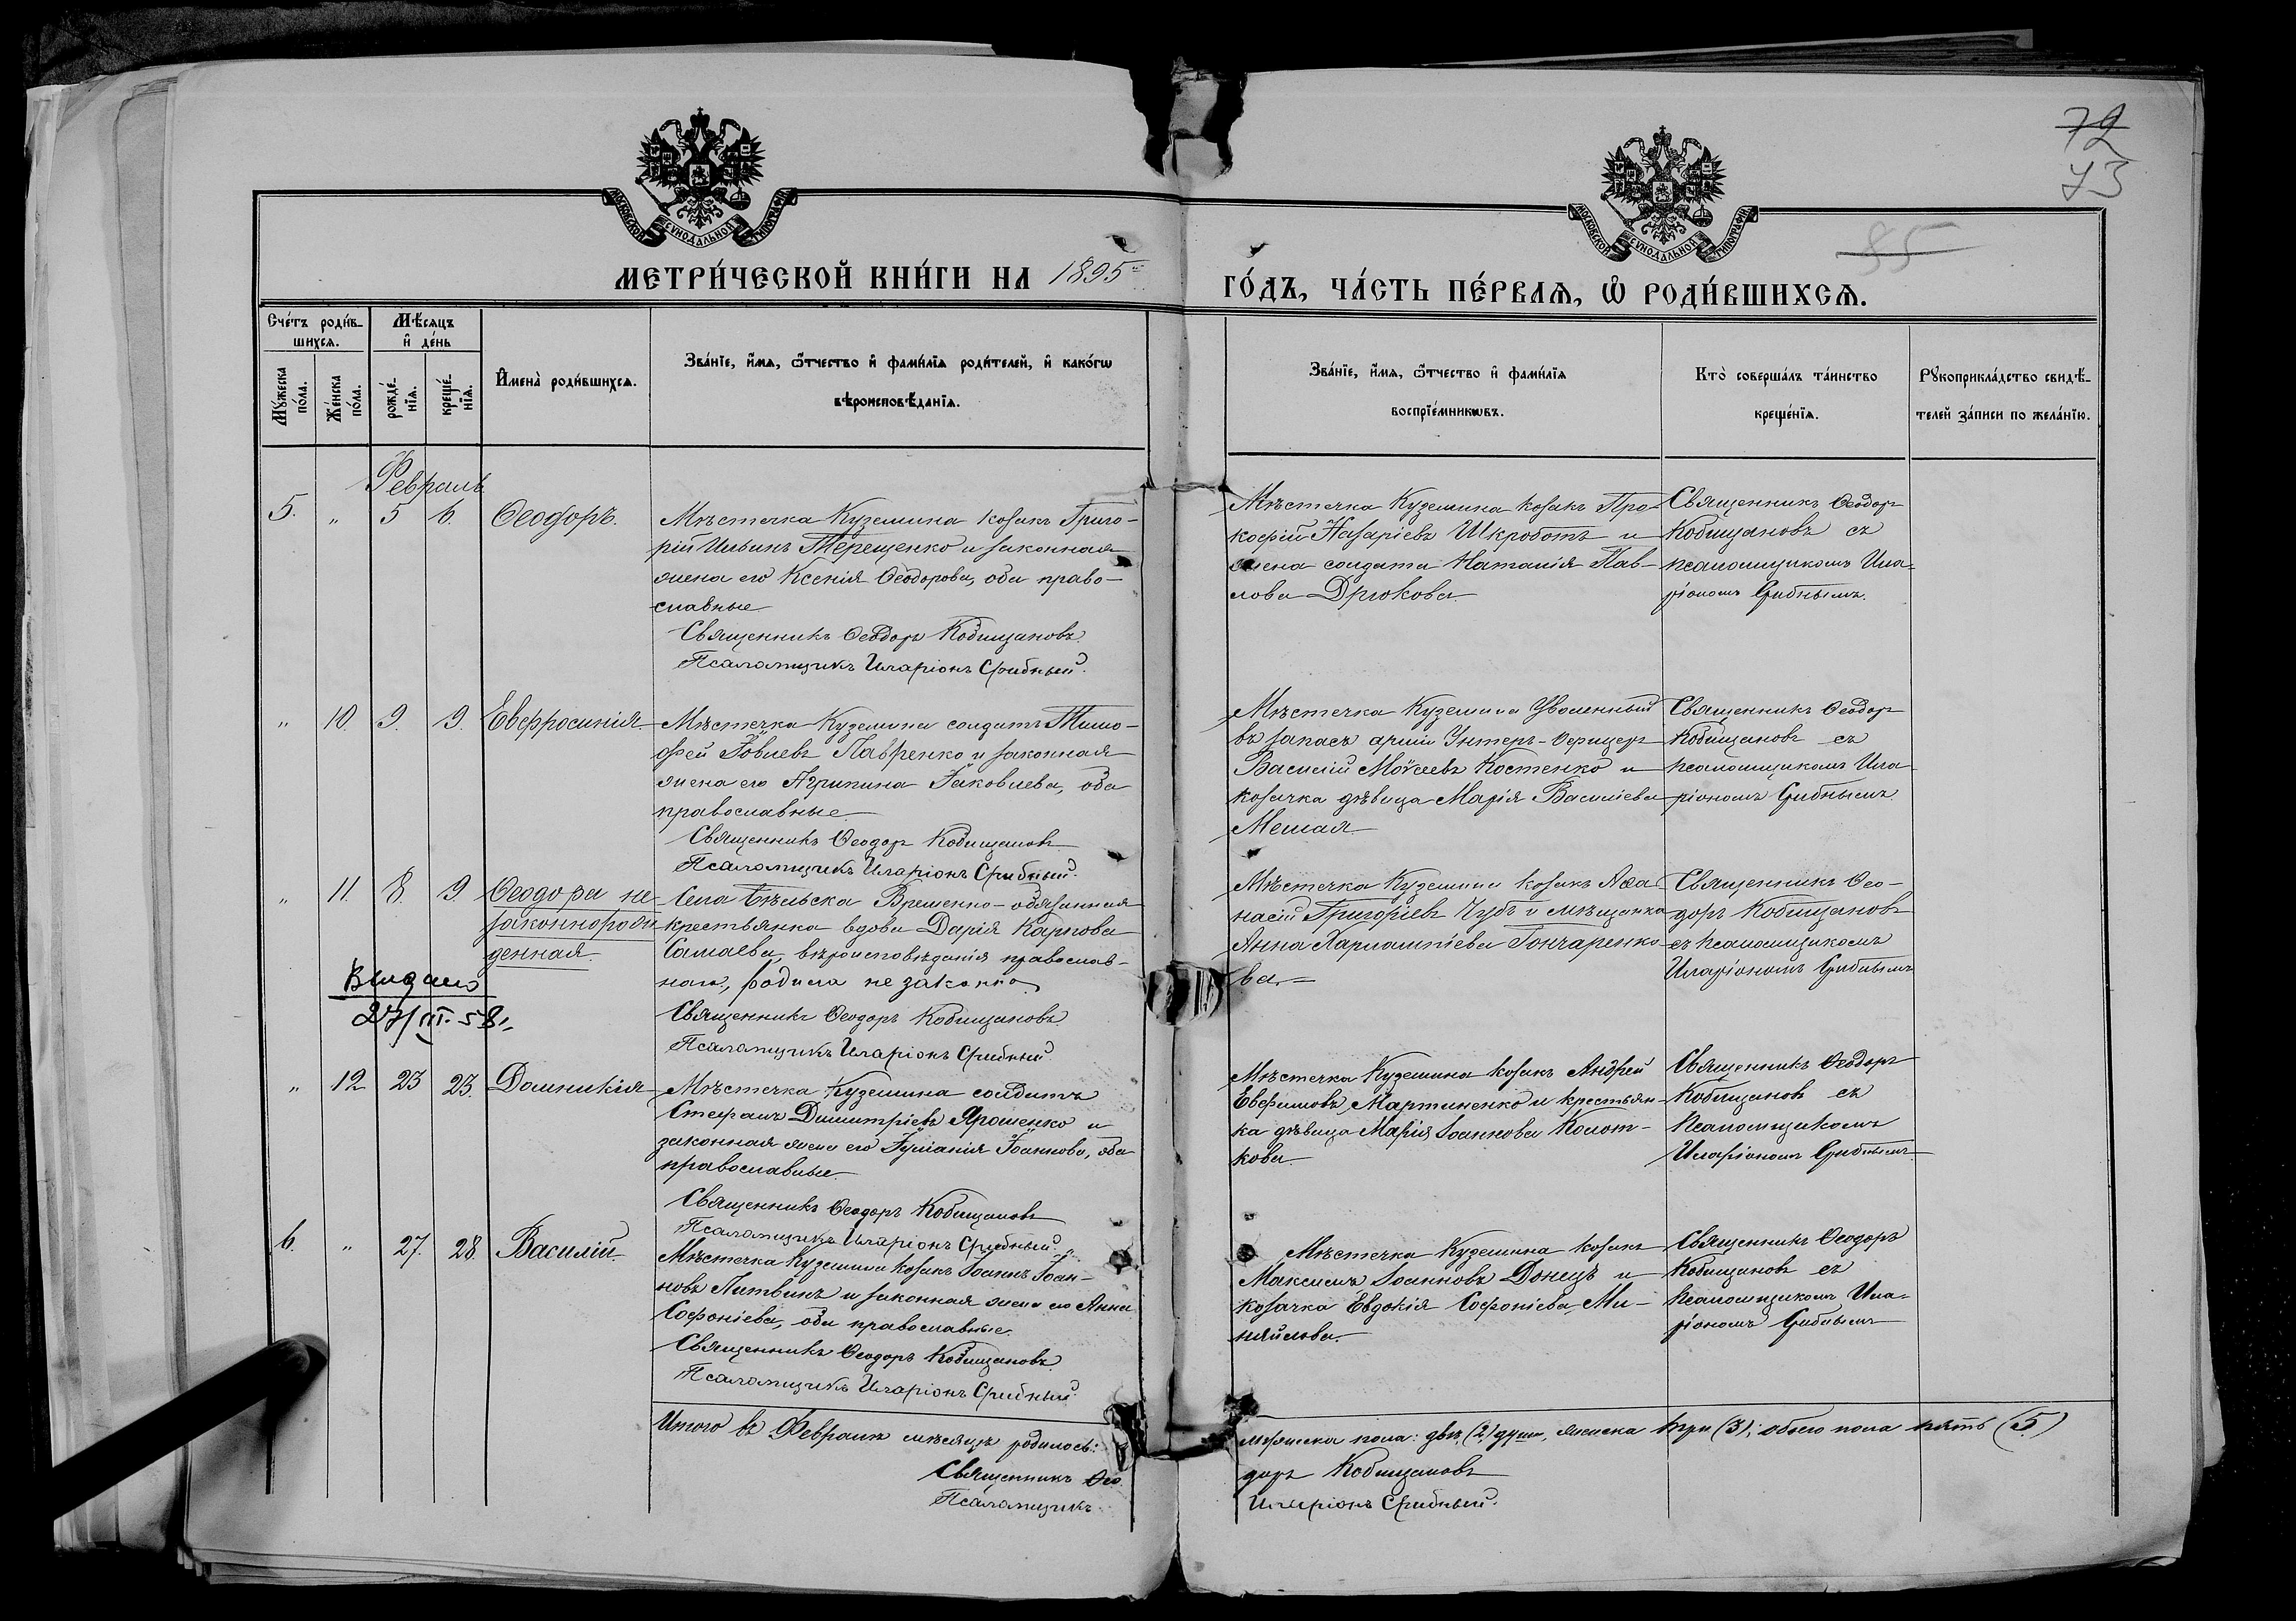 72
73
85
МОСКОВСКОЙ СѴНОДАЛЬНОЙ ТИПОГРАФІИ
МОСКОВСКОЙ СѴНОДАЛЬНОЙ ТИПОГРАФІИ
МЕТРИ́ЧЕСКОЙ КНИ́ГИ НА 1895
ГО́ДЪ, ЧА́СТЬ ПЕ́РВАѦ, Ѡ҆ РОДИ́ВШИХСѦ.
Сче́тъ роди́в-
шихсѧ.
Мꙋ́жеска по́ла.
Же́нска по́ла.
Мѣ́сѧцъ
и҆ де́нь
рожде́-
нїѧ.
креще́-
нїѧ.
И҆мена̀ роди́вшихсѧ.
Зва́нїе, и҆́мѧ, ѻ҆́тчество и҆ фами́лїѧ роди́телей, и҆ како́гѡ
вѣроисповѣ́данїѧ.
Зва́нїе, и҆́мѧ, ѻ҆́тчество и҆ фами́лїѧ
воспрїе́мникѡвъ.
Кто̀ соверша́лъ та́инство
креще́нїѧ.
Рꙋкоприкла́дство свидѣ́-
телей за́писи по жела́нїю.
Февраль
5. „ 5 6. Ѳеодоръ.
Мѣстечка Куземина козакъ Григо-
рій Ильинъ Терещенко и законная
жена его Ксенія Ѳеодорова, оба право-
славные
Священникъ Ѳеодоръ Кобищановъ
Псаломщикъ Иларіонъ Срибный.
Мѣстечка Куземина козакъ Про-
кофій Назаріевъ Шкроботъ и
жена солдата Наталія Пав-
лова Дрюкова
Священникъ Ѳеодоръ
Кобищановъ съ
псаломщикомъ Ила-
ріономъ Срибнымъ.
„ 10. 9. 9. Евфросинія.
Мѣстечка Куземина солдатъ Тимо-
фей Іовлевъ Лавренко и законная
жена его Агрипина Іаковлева, оба
православные
Священникъ Ѳеодоръ Кобищановъ
Псаломщикъ Иларіонъ Срибный.
Мѣстечка Куземина Уволенный
въ запасъ арміи Унтеръ-Офицеръ
Василій Моѵсеевъ Костенко и
козачка дѣвица Марія Василіева
Мешая
Священникъ Ѳеодоръ
Кобищановъ съ
псаломщикомъ Ила-
ріономъ Срибнымъ.
„ 11. 8. 9. Ѳеодора не
законнорож
денная.
Выдано
27/III.-58г.
Села Бѣльска Временно-обязанная
крестьянка вдова Дарія Карпова
Самаева, вѣроисповѣданія православ-
наго, родила не законно
Священникъ Ѳеодоръ Кобищановъ
Псаломщикъ Иларіонъ Срибный.
Мѣстечка Куземина козакъ Аѳа-
насій Григоріевъ Чубъ и мѣщанка
Анна Харлампіева Гончаренко-
ва.
Священникъ Ѳео-
доръ Кобищановъ
съ псаломщикомъ
Иларіономъ Срибнымъ
„ 12 23 23. Домникія
Мѣстечка Куземина солдатъ
Стефанъ Димитріевъ Ярошенко и
законная жена его Іуліанія Іоаннова, оба
православные.
Священникъ Ѳеодоръ Кобищановъ
Псаломщикъ Иларіонъ Срибный.
Мѣстечка Куземина козакъ Андрей
Евфимовъ Мартиненко и крестьян-
ка дѣвица Марія Іоаннова Колот-
кова.
Священникъ Ѳеодоръ
Кобищановъ съ
Псаломщикомъ
Иларіономъ Срибнымъ
6. „ 27. 28 Василій.
Мѣстечка Куземина козакъ Іоаннъ Іоан-
новъ Литвинъ и законная жена его Анна
Софоніева, оба православные.
Священникъ Ѳеодоръ Кобищановъ
Псаломщикъ Иларіонъ Срибный.
Мѣстечка Куземина козакъ
Максимъ Іоанновъ Донецъ и
козачка Евдокія Софоніева Ми-
няйлова.
Священникъ Ѳеодоръ
Кобищановъ съ
псаломщикомъ Ила-
ріономъ Срибнымъ
Итого въ Февралѣ мѣсяцѣ родилось: мужеска пола: двѣ (2) души, женска три (3); обоего пола пять (5)
Священникъ Ѳеодоръ Кобищановъ
Псаломщикъ Иларіонъ Срибный.